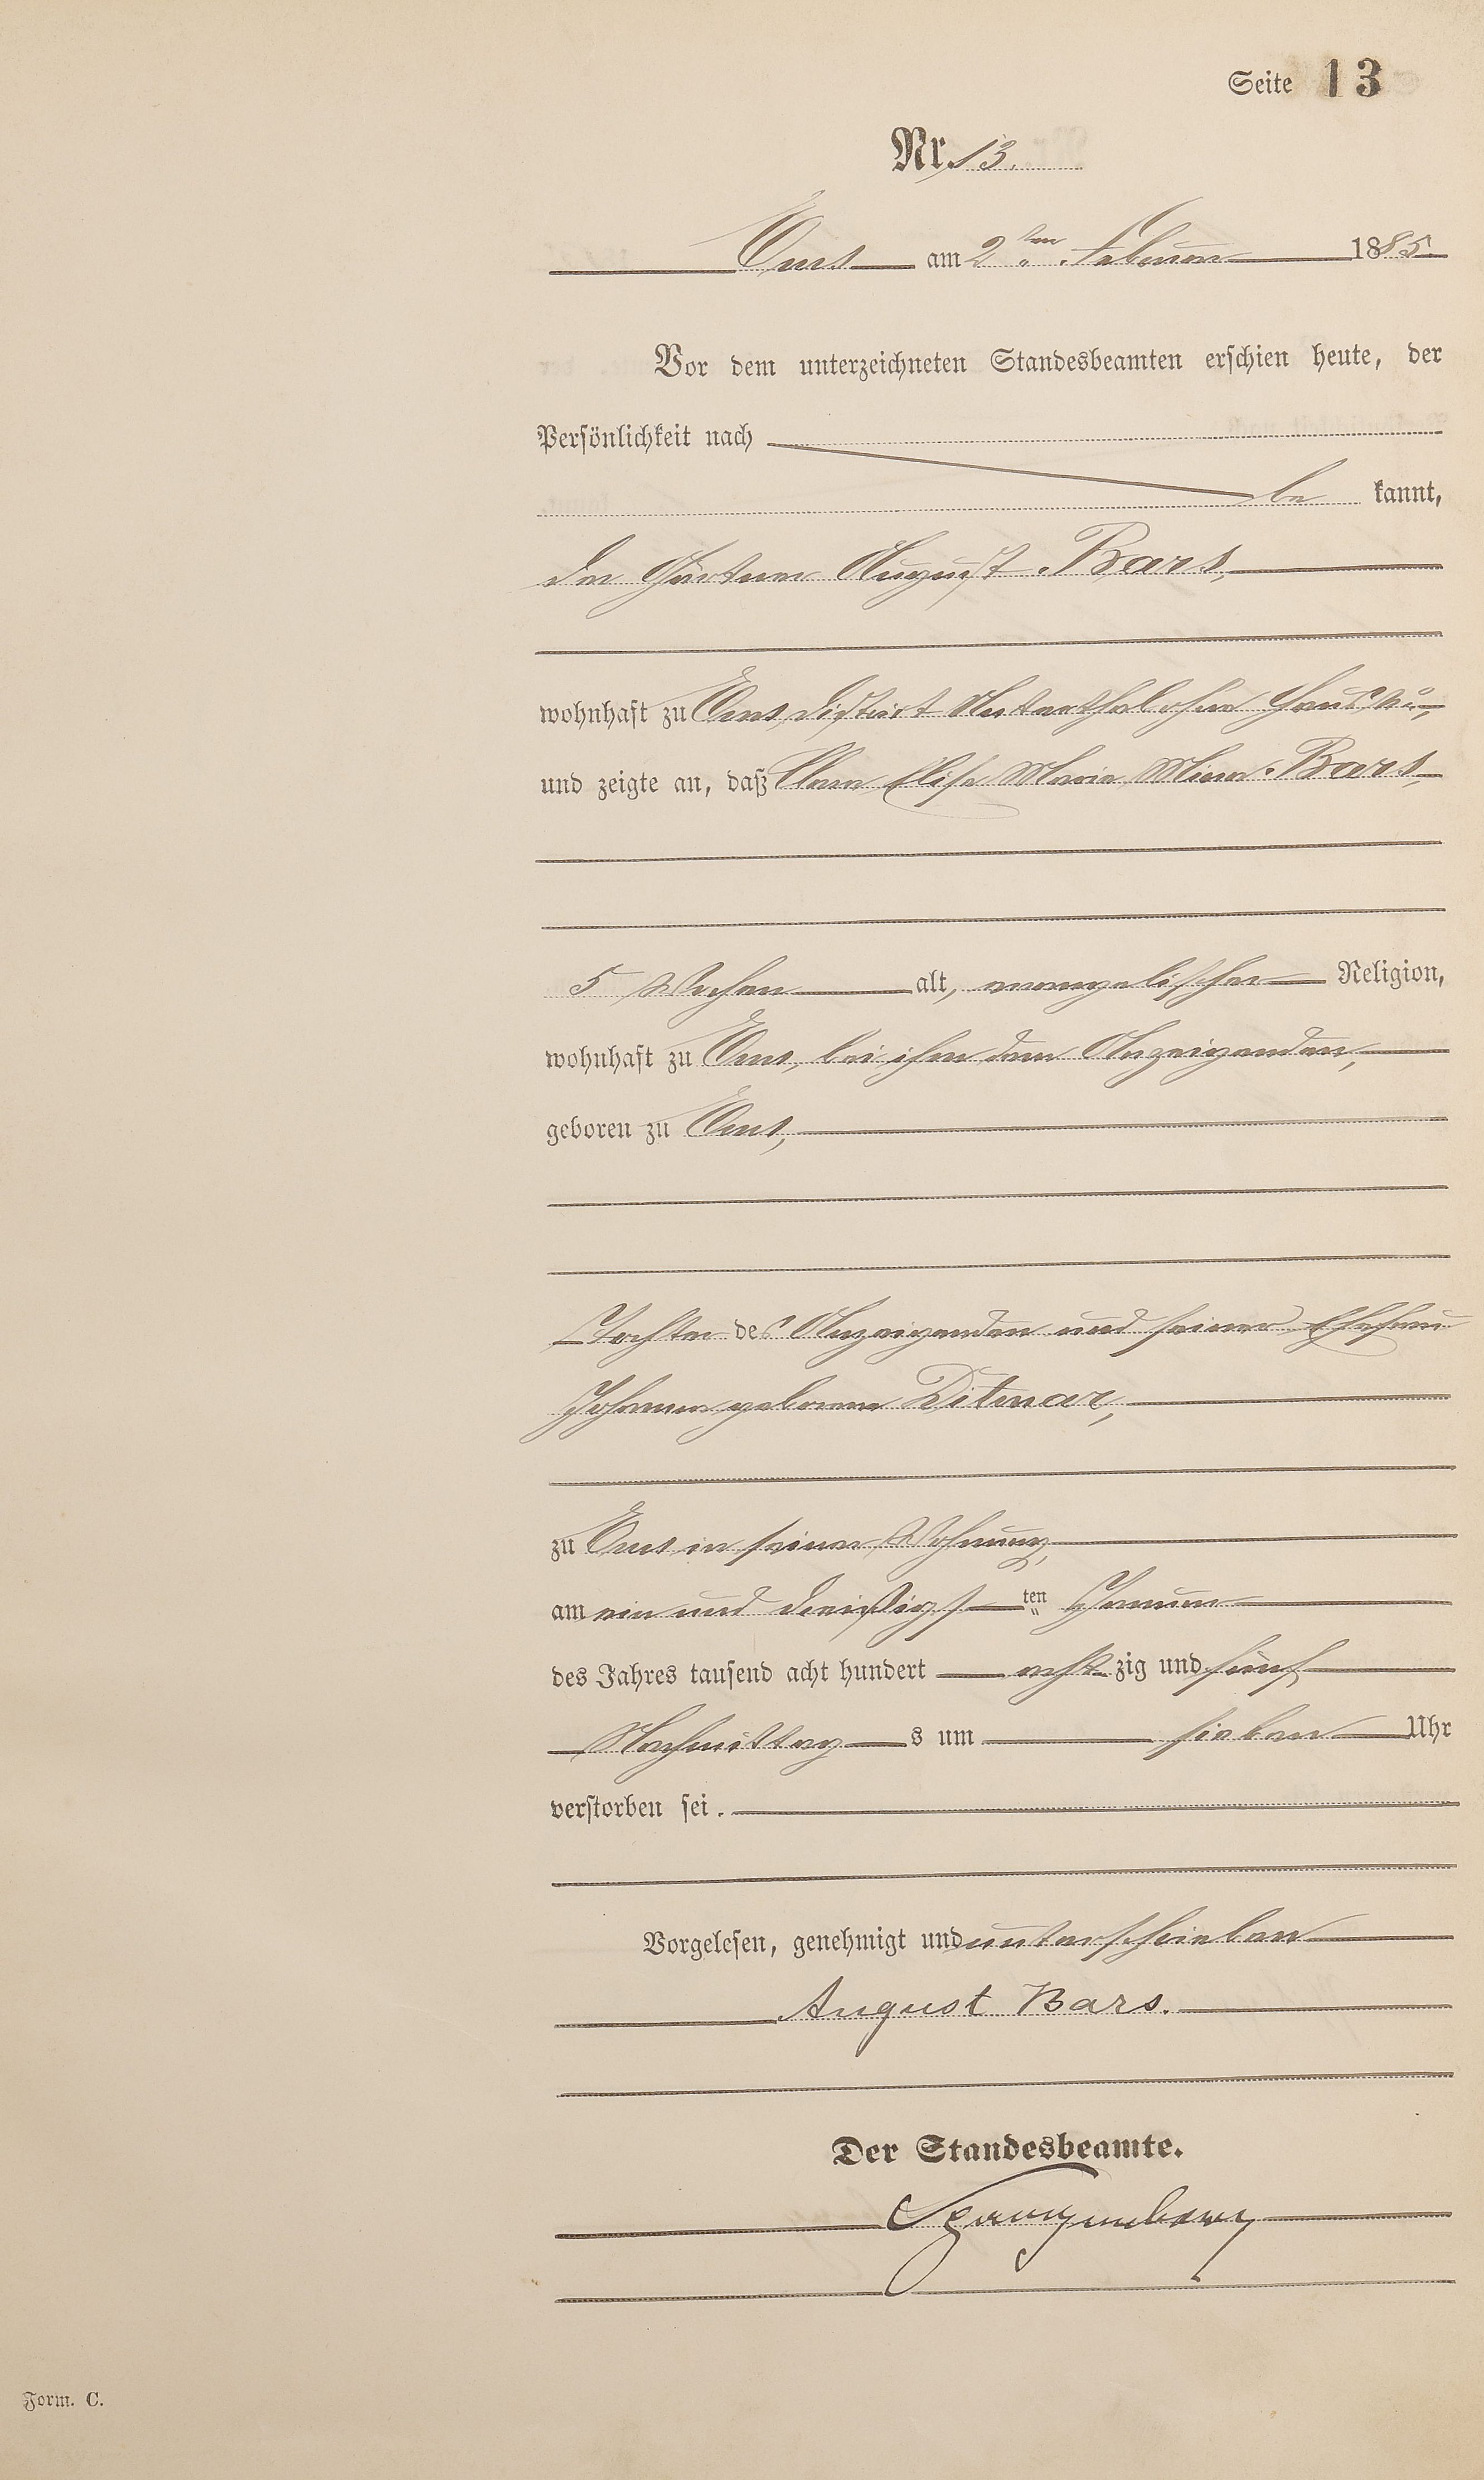 Seite 13
Nr. 13.
Ems am 2ten Februar 1885.
Vor dem unterzeichneten Standesbeamten erschien heute, der
Persönlichkeit nach
be kannt,
der Gärtner August Bars,
wohnhaft zu Ems, District Unterthal ohne Haus Nr.,
und zeigte an, daß Clara Elise Marie Mina Bars,
5 Wochen alt, evangelischer Religion,
wohnhaft zu Ems, bei ihm dem Anzeigenden,
geboren zu Ems,
Tochter des Anzeigenden und seiner Ehefrau
Johanna geborene Ditmar,
zu Ems in seiner Wohnung,
am ein und dreißigsten Januar
des Jahres tausend acht hundert achtzig und fünf
Nachmittags um sieben Uhr
verstorben sei.
Vorgelesen, genehmigt und unterschrieben
August Bars.
Der Standesbeamte.
Form. C.